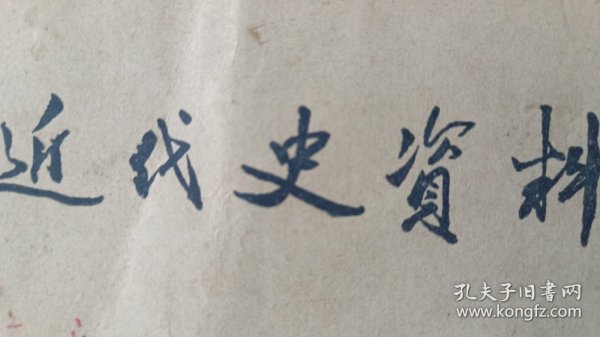 近代史資料
孔夫子旧書网
www.kongfz.com